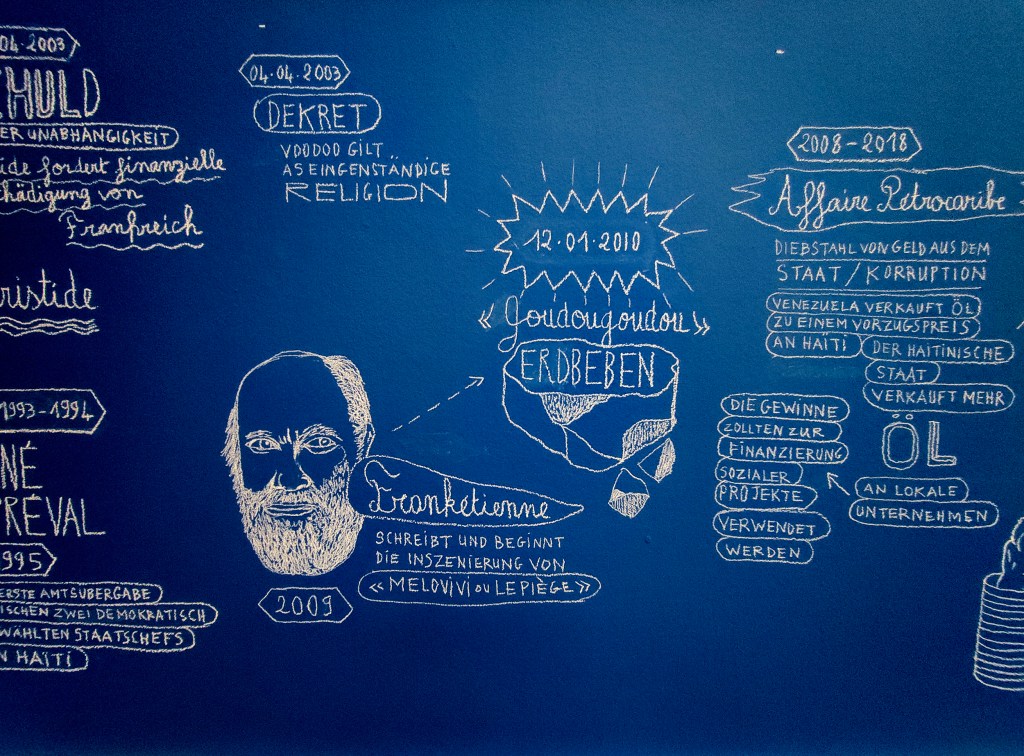 04.2003
HULD
ER UNABHÄNGIGKEIT
ide fordert finanzielle
chädigung von
Frankreich
ristide
1993-1994
NÉ
PRÉVAL
1995
ERSTE AMTSÜBERGABE
ISCHEN ZWEI DEMOKRATISCH
WÄHLTEN STAATSCHEFS
N HAÏTI
04.04.2003
DEKRET
VOODOO GILT
AS EINGENSTÄNDIGE
RELIGION
12.01.2010
« Goudougoudou »
ERDBEBEN
Frankétienne
SCHREIBT UND BEGINNT
DIE INSZENIERUNG VON
« MELOVIVI OU LE PIÈGE »
2009
2008-2018
Affaire Petrocaribe
DIEBSTAHL VON GELD AUS DEM
STAAT / KORRUPTION
VENEZUELA VERKAUFT ÖL
ZU EINEM VORZUGSPREIS
AN HAÏTI
DER HAITINISCHE
STAAT
VERKAUFT MEHR
ÖL
AN LOKALE
UNTERNEHMEN
DIE GEWINNE
ZOLLTEN ZUR
FINANZIERUNG
SOZIALER
PROJEKTE
VERWENDET
WERDEN